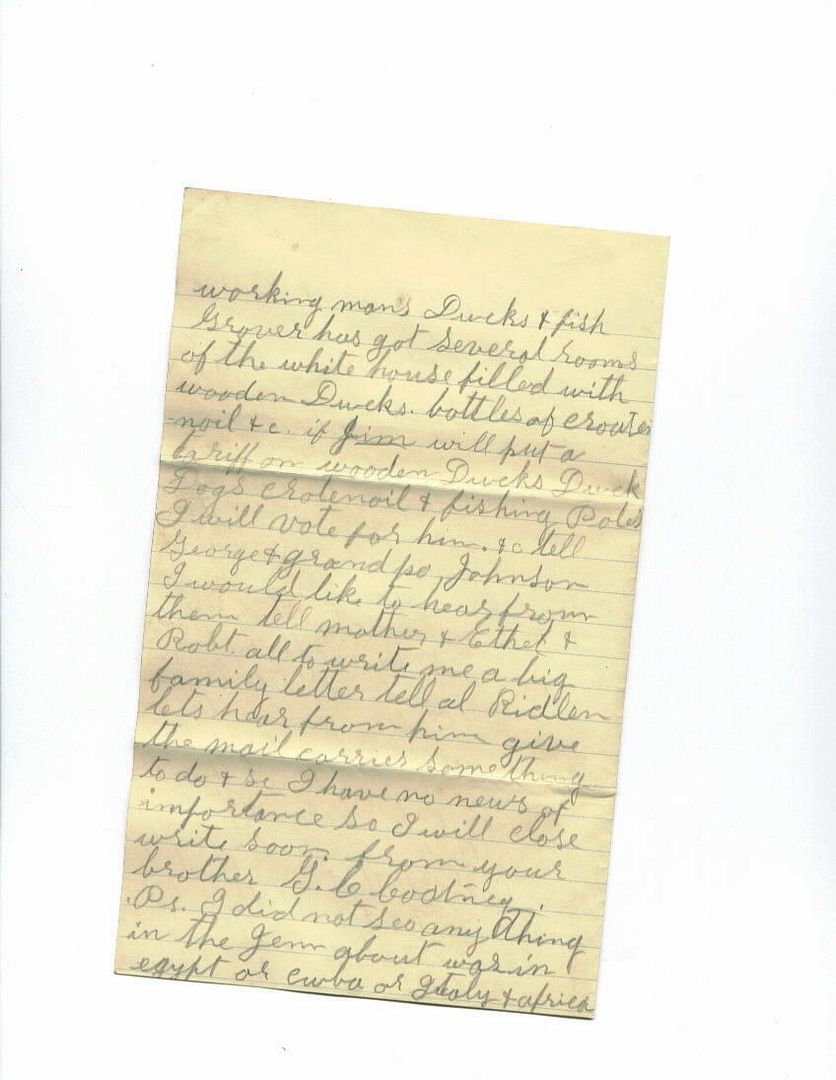 working mans Ducks & fish
Grover has got several rooms
of the white house filled with
wooden Ducks. bottles of croten
noil &c. if Jim will put a
tariff on wooden Ducks Duck
Dogs crotenoil & fishing Poles
I will vote for him. &c tell
George & grand pa Johnson
I would like to hear from
them tell mother & Ethel &
Robt. all to write me a big
family letter tell al Ridlen
lets hear from him give
the mail carrier some thing
to do & sc I have no news of
importance so I will close
write soon from your
brother G. C
Ps. I did not see any thing
in the Jenn about war in
egypt or cuba or Italy & africa